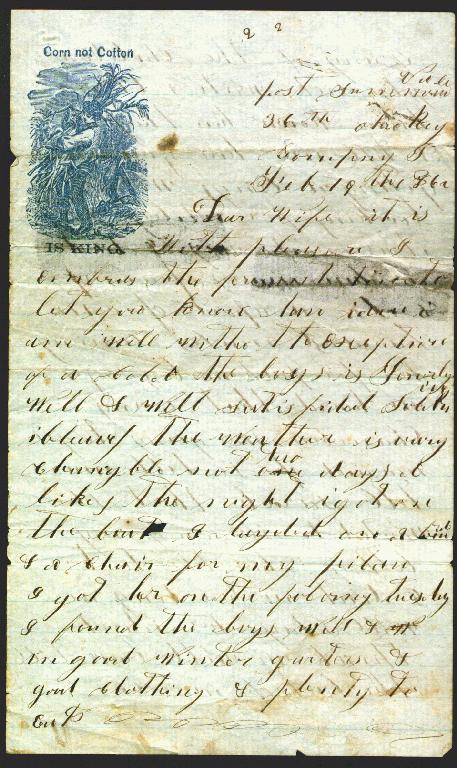 2 2
Corn not Cotton
IS KING.
post Summerville
36th ohio Reg
Company I
Feb 19 the 186
Dear Wife it is
With pleasure I
embrace the
let you know how
are well withe the exception
of a cold the boys is
Well & Well satisfied
the weather is very
changable not two days a
like the night i got on
the boat I layed on a
& a chair for my pilow
I got her on the folowing tuesday
I found the boys well &
in good winter quarters &
good clothing & plenty to
eat